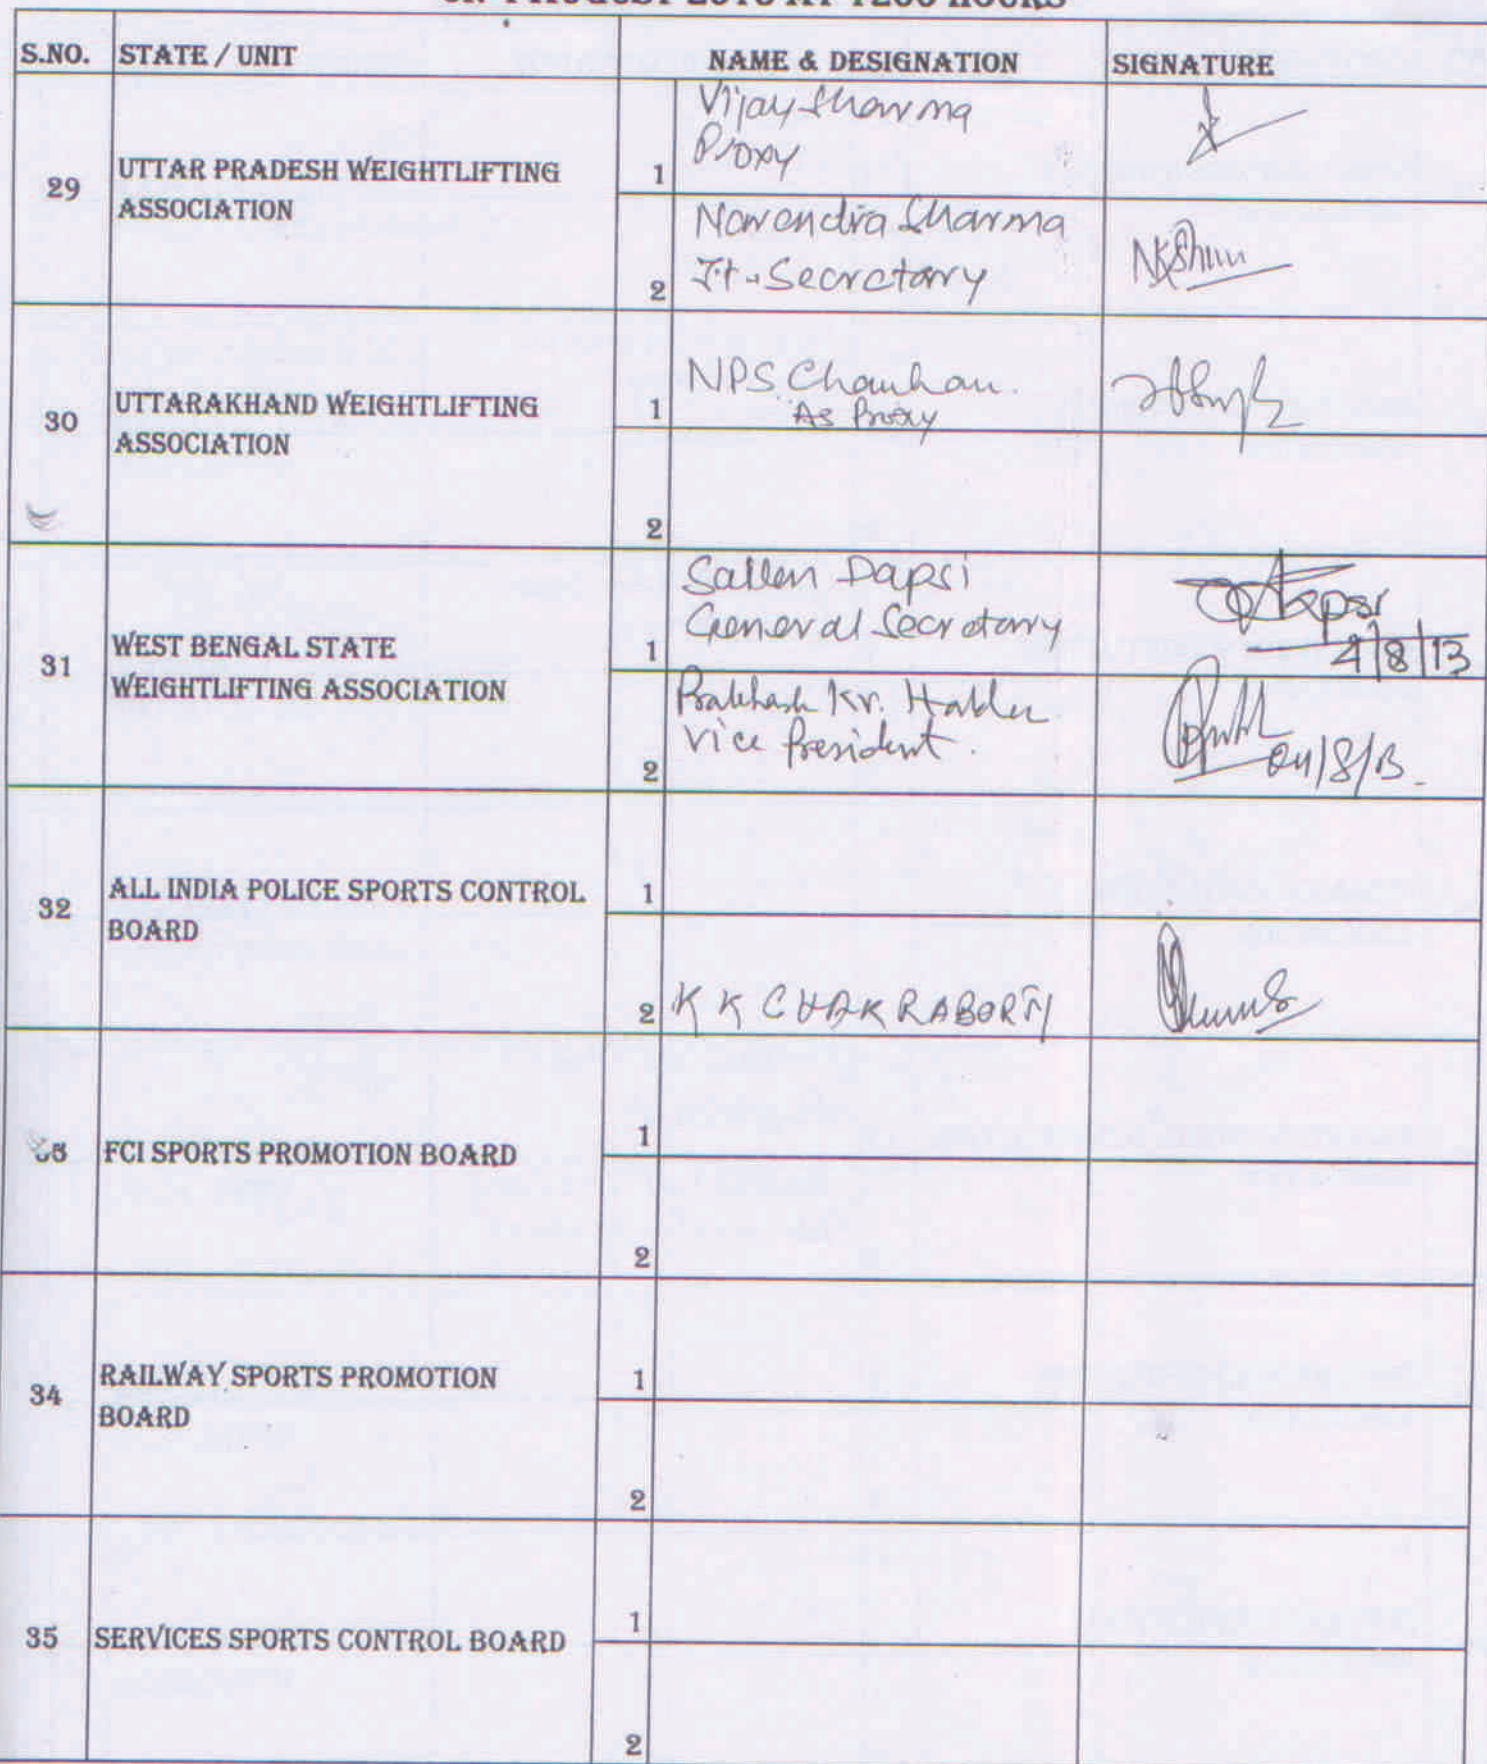 S.NO. STATE / UNIT NAME & DESIGNATION SIGNATURE
29 UTTAR PRADESH WEIGHTLIFTING
ASSOCIATION
1 Vijay Sharma
Proxy
2 Narendra Sharma
Jt. Secretary
30 UTTARAKHAND WEIGHTLIFTING
ASSOCIATION
1 NPS Chauhan.
As Proxy
2
31 WEST BENGAL STATE
WEIGHTLIFTING ASSOCIATION
1 Sallen Dapsi
General Secretary
4/8/13
2 Prakhash Kr. Halder
Vice President.
04/8/13.
32 ALL INDIA POLICE SPORTS CONTROL
BOARD
1
2 K K CHAKRABORTI
FCI SPORTS PROMOTION BOARD
1
2
34 RAILWAY SPORTS PROMOTION
BOARD
1
2
35 SERVICES SPORTS CONTROL BOARD
1
2